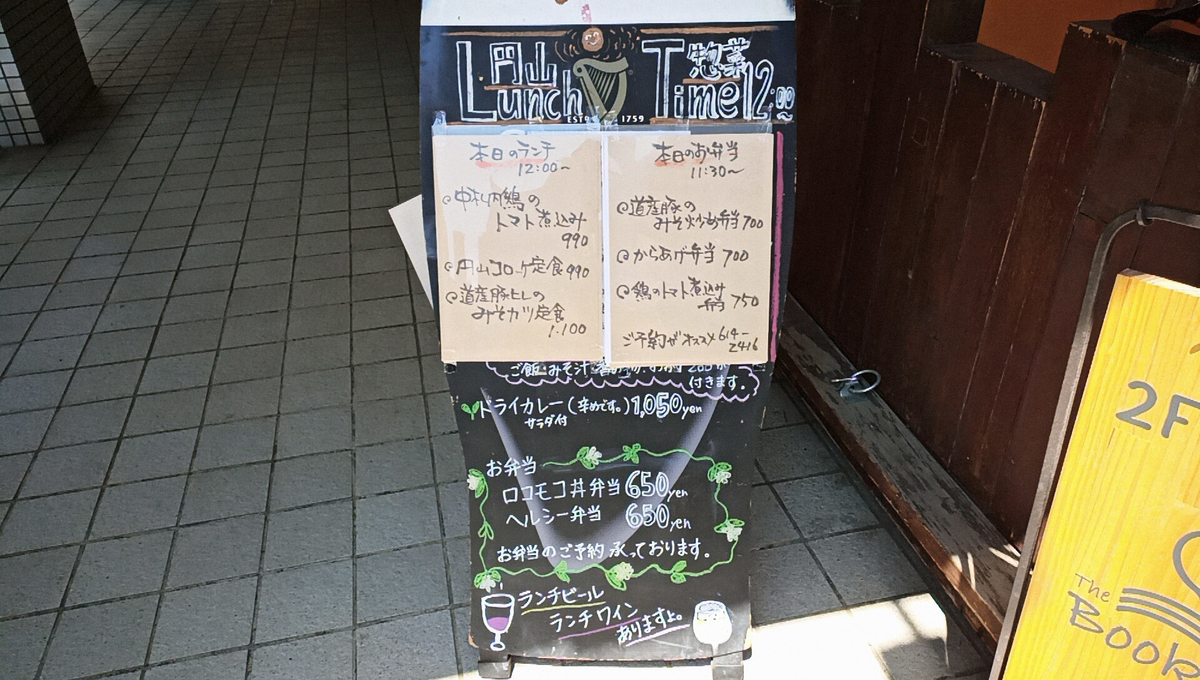 円山
惣菜
Lunch Time 12:00~
ESTD 1759
本日のランチ
12:00~
中札内鶏の
トマト煮込み
990
円山コロッケ定食 990
道産豚ヒレの
みそカツ定食
1.100
本日のお弁当
11:30~
道産豚の
みそ炒め弁当 700
からあげ弁当 700
鶏のトマト煮込み
弁当 750
ご予約がオススメ 614-
2416
ご飯・みそ汁
付きます。
ドライカレー(辛めです。) 1,050yen
サラダ付
お弁当
ロコモコ丼弁当 650yen
ヘルシー弁当 650yen
お弁当のご予約承っております。
ランチビール
ランチワイン
ありますよ。
2F
The
Book